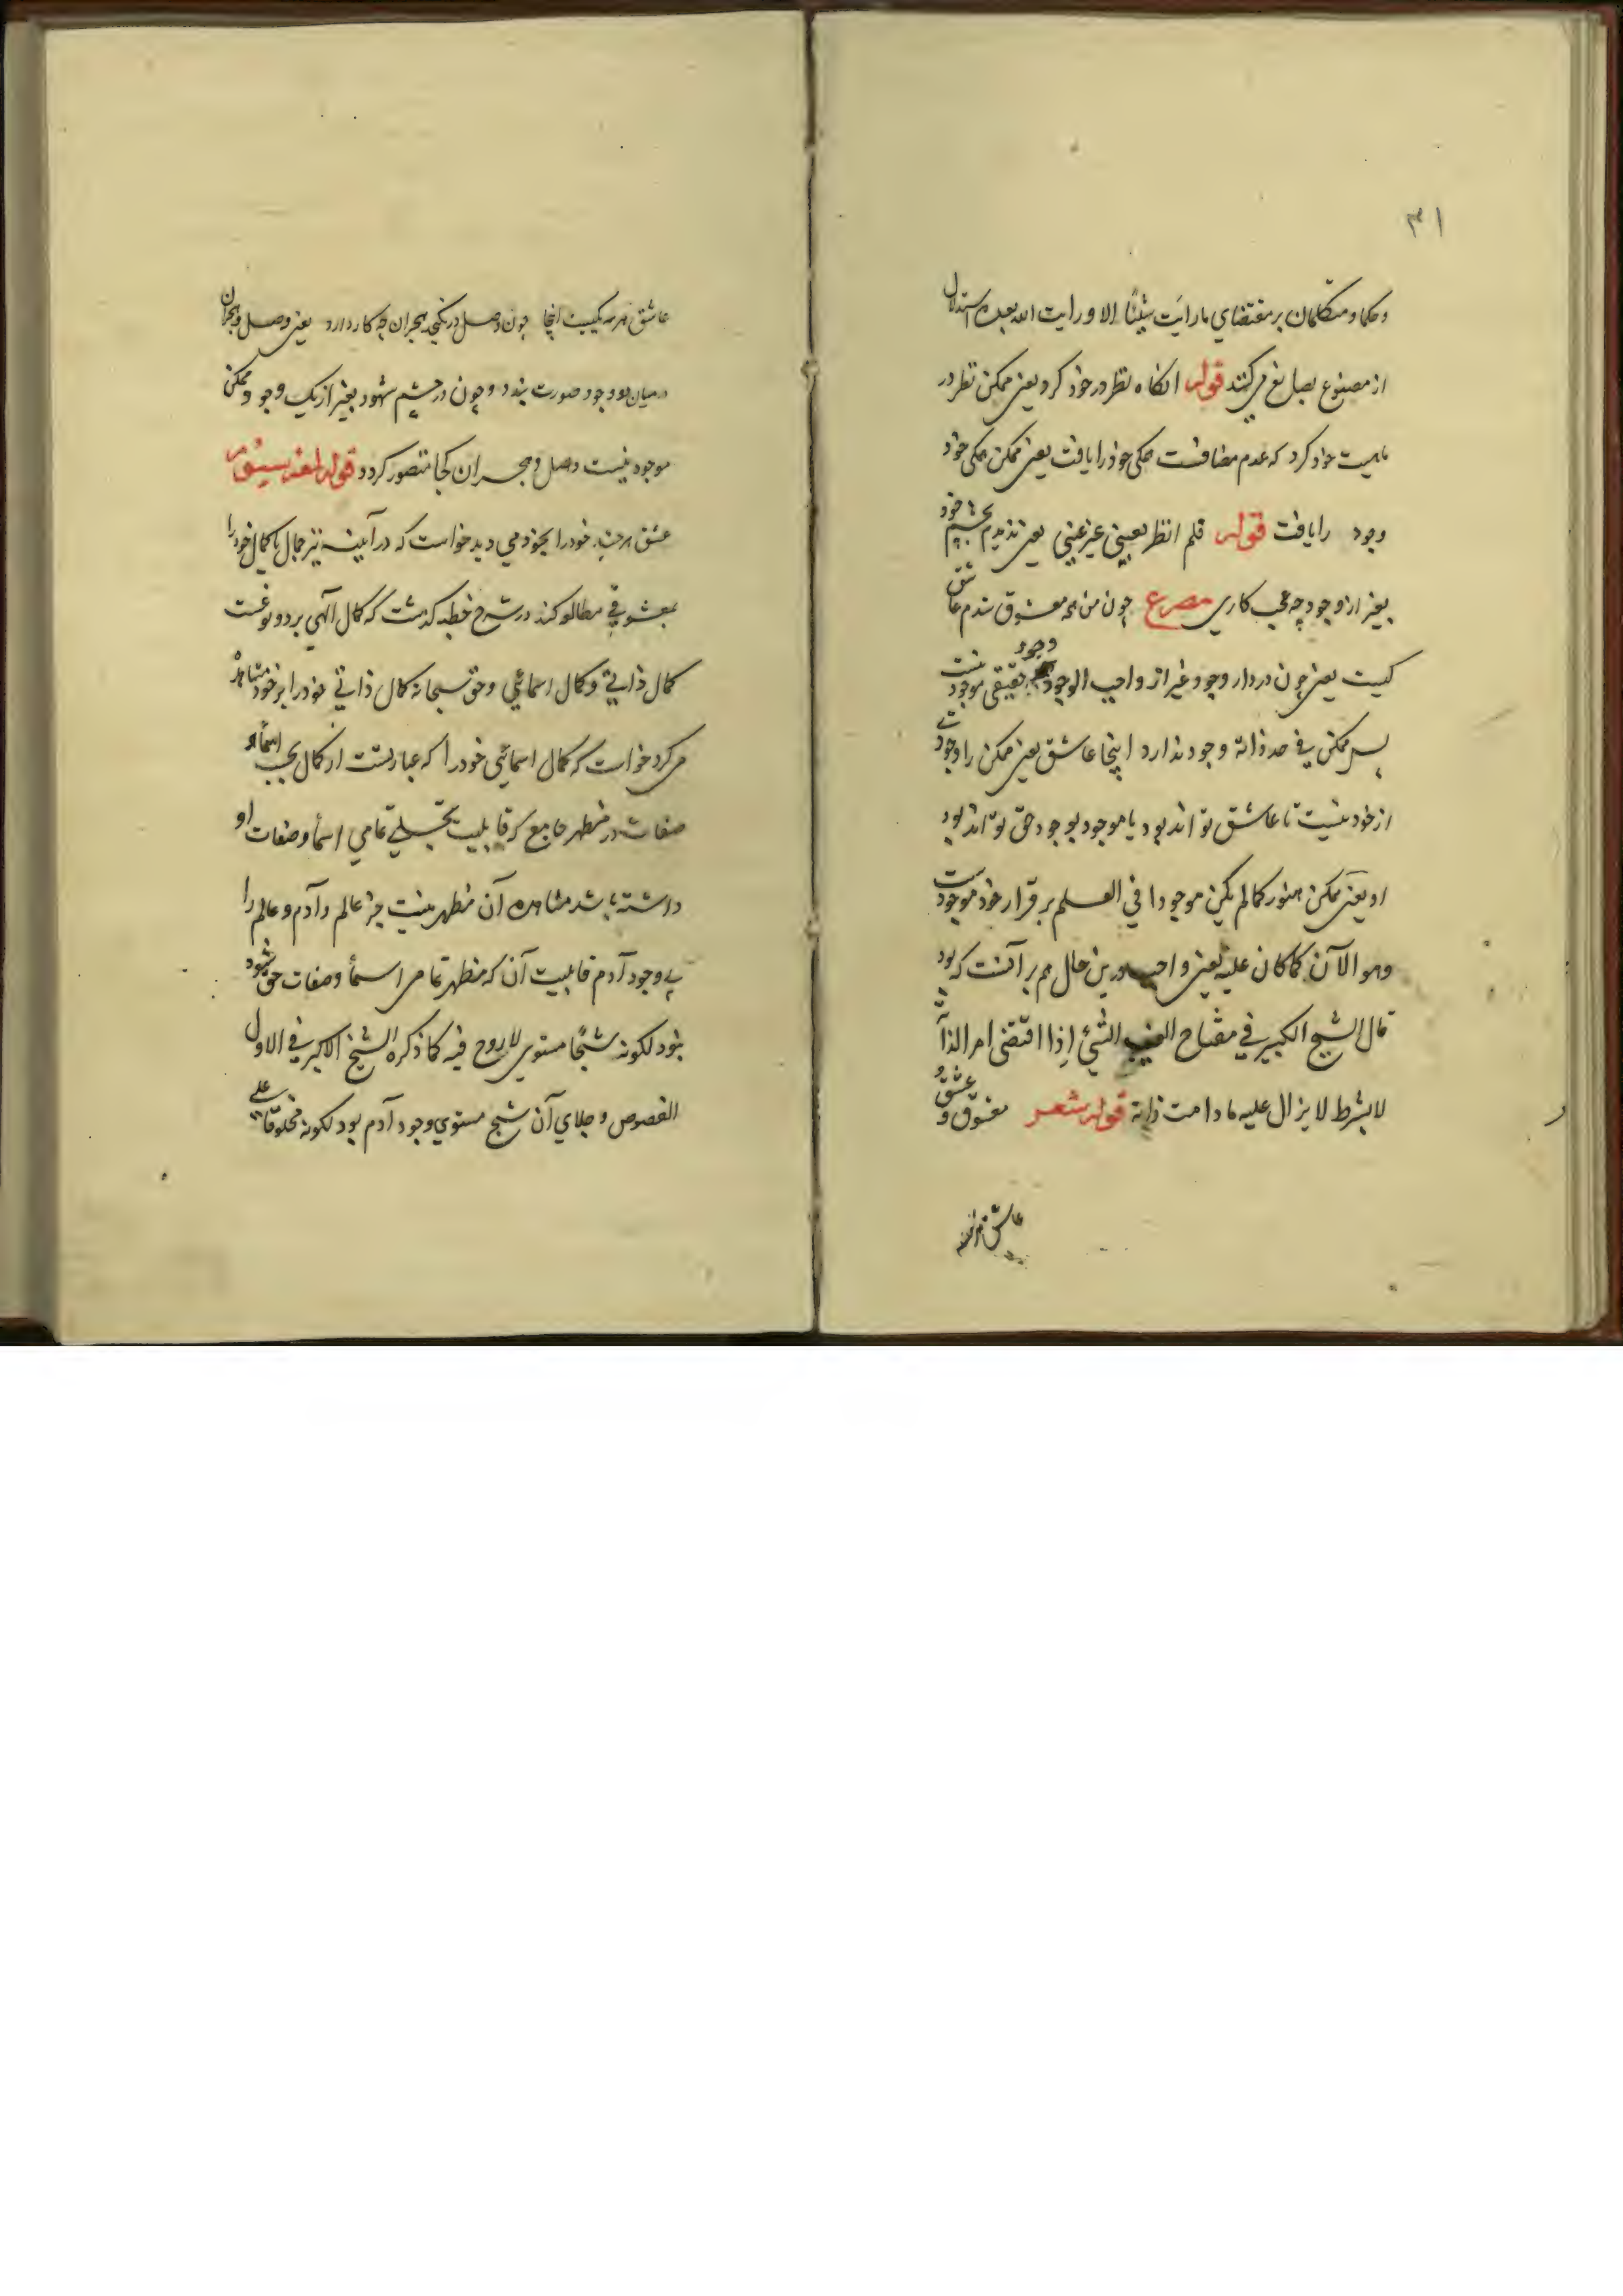 ۳۱
وحکما و متکلمان بر مقتضای ما رایت شیئا الا و رایت الله بعده استدلال
از مصنوع بصانع می کنند قوله انگاه نظر در خود کرد یعنی ممکن نظر در
ماهیت خود کرد که عدم مضافست همگی خود را یافت یعنی ممکن همگی خود
وجود را یافت قوله فلم انظر بعینی غیر عینی یعنی ندیدم بچشم خود
بغیر از وجود چه عجب کاری مصرع چون من همه معشوق شدم عاشق
کیست یعنی چون در دار وجود غیر از واجب الوجود وجود حقیقی موجود نیست
پس ممکن فی حد ذاته وجود ندارد اینجا عاشق یعنی ممکن را وجودی
از خود نیست تا عاشق تواند بود یا موجود بوجود حق تواند بود
او یعنی ممکن هنوز کما لم یکن موجودا فی العلم بر قرار خود موجودست
وهو الآن کما کان علیه یعنی واجب درین حال هم بر آنست که بود
قال الشیخ الکبیر فی مفتاح الغیب الشئ إذا اقتضی امر الذاته
لا بشرط لا یزال علیه ما دامت ذاته قوله شعر معشوق و عشق و
عاشق هر سه
عاشق هر سه یکیست اینجا چون وصل در نگنجد هجران چه کار دارد یعنی وصل و هجران
در میان دو وجود صورت بندد و چون در چشم شهود بغیر از یک وجود ممکن
موجود نیست وصل و هجران کجا متصور گردد قوله لمعه سیوم
عشق هر چند خود را بخود می دید خواست که در آیینه نیز جمال با کمال خود را
بمعشوقی مطالعه کند در شرح خطبه گذشت که کمال الهی بر دو نوعست
کمال ذاتی و کمال اسمائی و حق سبحانه کمال ذاتی خود را بر خود مشاهده
می کرد خواست که کمال اسمائی خود را که عبارتست از کمال بحسب اسما و
صفات در مظهر جامع که قابلیت تجلی تمامی اسما و صفات او
داشته باشد مشاهده آن مظهر نیست جز عالم و آدم و عالم را
بی وجود آدم قابلیت آن که مظهر تمامی اسما و صفات حق شود
نبود لکونه شبحا مستوی لا روح فیه کما ذکره الشیخ الاکبر فی الاول
الفصوص و جلای آن شبح مستوی وجود آدم بود لکونه مخلوقا علی